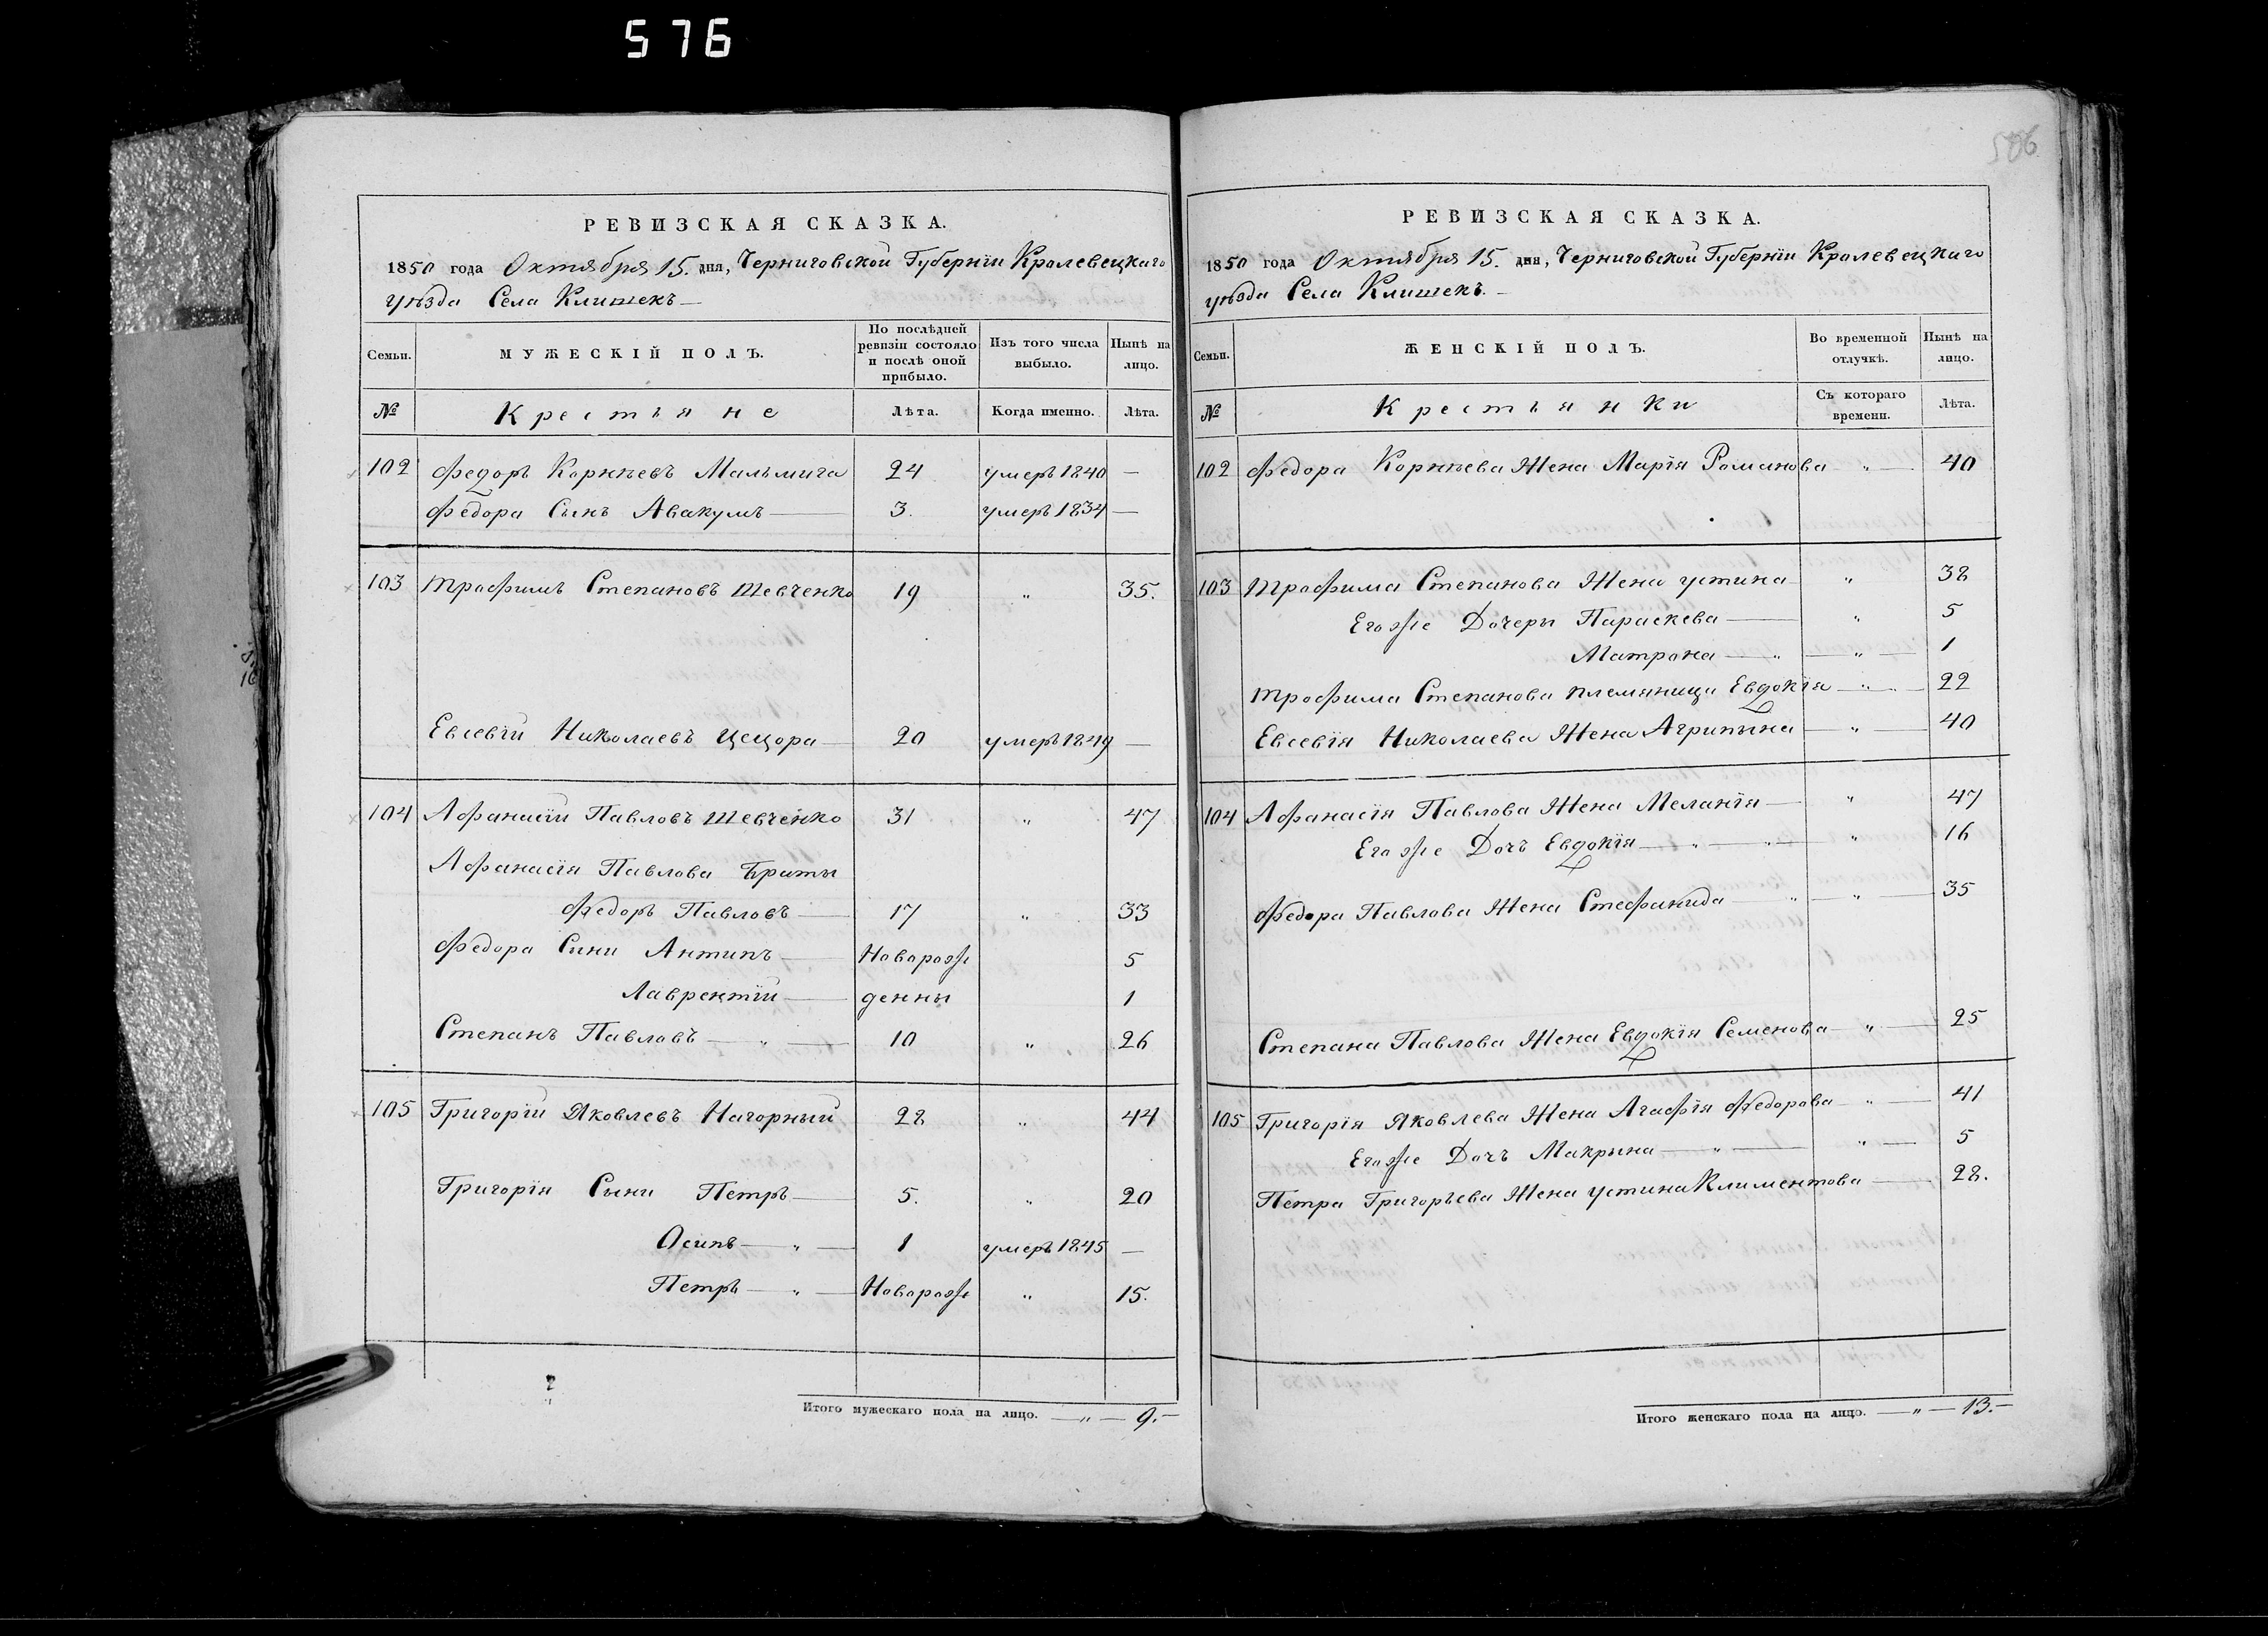 576
506
РЕВИЗСКАЯ СКАЗКА.
1850 года Октября 15. дня, Черниговской Губернїи Кролевецкаго
уѣзда Села Клишекъ —
Семьи.
МУЖЕСКІЙ ПОЛЪ.
По послѣдней ревизіи состояло и послѣ оной прибыло.
Изъ того числа выбыло.
Нынѣ на лицо.
№
Крестьяне
Лѣта.
Когда именно.
Лѣта.
102 Федоръ Корнѣевъ Мальмига 24 умеръ 1840 —
Федора Сынъ Авакумъ — 3. умеръ 1834 —
103 Трофимъ Степановъ Шевченко 19 „ 35.
Евсевїй Николаевъ Цецора — 20 умеръ 1849 —
104 Афанасїй Павловъ Шевченко 31 „ 47
Афанасїя Павлова Браты
Федоръ Павловъ — 17 „ 33
Федора Сини Антипъ — Новорож 5
Лаврентїй — денны 1
Степанъ Павловъ — „ — 10 „ 26
105 Григорїй Яковлевъ Нагорный 28 „ 44
Григорїя Сыни Петръ — 5. „ 20
Осипъ — „ — 1 умеръ 1845 —
Петръ — „ — Новорож „ 15.
Итого мужескаго пола на лицо. — „ — 9. —
РЕВИЗСКАЯ СКАЗКА.
1850 года Октября 15. дня, Черниговской Губернїи Кролевецкаго
уѣзда Села Клишекъ. —
Семьи.
ЖЕНСКІЙ ПОЛЪ.
Во временной отлучкѣ.
Нынѣ на лицо.
№
Крестьянки
Съ котораго времени.
Лѣта.
102 Федора Корнѣева Жена Марїя Романова „ — 40
103 Трофима Степанова Жена Устина — „ 38
Егоже Дочеры Параскева — „ 5
Матрона — „ — „ — 1
Трофима Степанова племяница Евдокїя — „ — 22
Евсевїя Николаева Жена Агрипына — „ — 40
104 Афанасїя Павлова Жена Меланїя — „ 47
Егоже Дочъ Евдокїя — „ — „ — „ 16
Федора Павлова Жена Стефанида — „ — „ — 35
Степана Павлова Жена Евдокїя Семенова — „ — 25
105 Григорїя Яковлева Жена Агафїя Федорова — „ — 41
Егоже Дочъ Макрына — „ — „ — 5
Петра Григорьева Жена Устина Климентова — 28.
Итого женскаго пола на лицо. — „ — 13. —